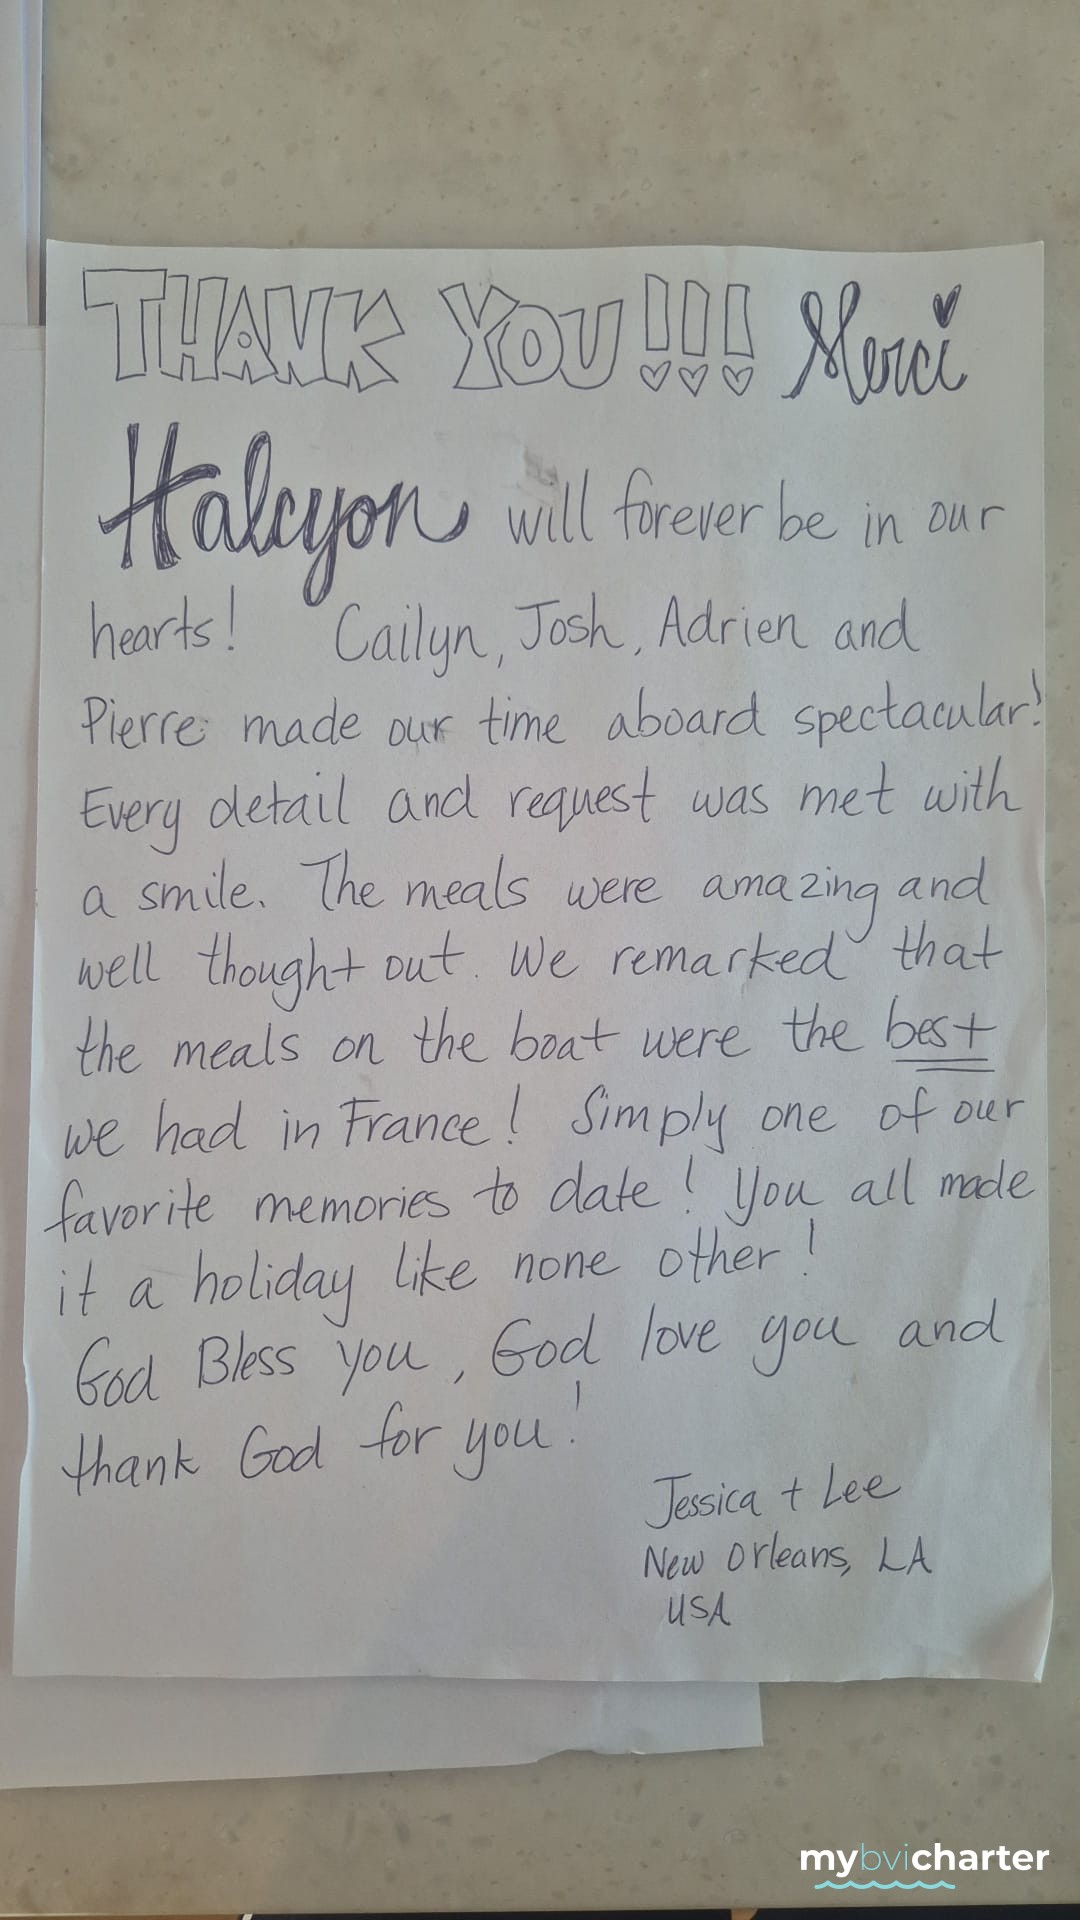 THANK YOU!!! Merci
Halcyon will forever be in our
hearts! Cailyn, Josh, Adrien and
Pierre made our time aboard spectacular!
Every detail and request was met with
a smile. The meals were amazing and
well thought out. We remarked that
the meals on the boat were the best
we had in France! Simply one of our
favorite memories to date! You all made
it a holiday like none other!
God Bless you, God love you and
thank God for you!
Jessica + Lee
New Orleans, LA
USA
mybvicharter